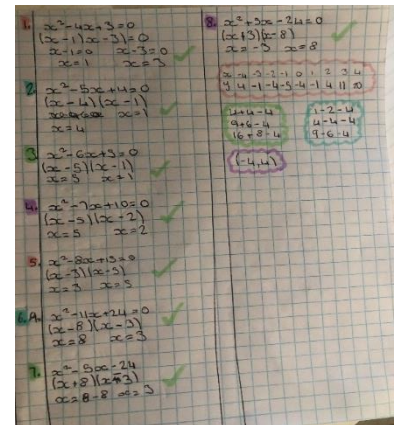 1. x²-4x+3=0
(x-1)(x-3)=0
x-1=0 x-3=0
x=1 x=3
2. x²-5x+4=0
(x-4)(x-1)
x=1
x=4
3. x²-6x+5=0
(x-5)(x-1)
x=5 x=1
4. x²-7x+10=0
(x-5)(x-2)
x=5 x=2
5. x²-8x+15=0
(x-3)(x-5)
x=3 x=5
6.A. x²-11x+24=0
(x-8)(x-3)
x=8 x=3
7. x²-5x-24
(x+8)(x-3)
x=8-8 x=3
8. x²+5x-24=0
(x+3)(x-8)
x=-3 x=8
x -4 -3 -2 -1 0 1 2 3 4
y 4 -1 -4 -5 -4 -1 4 11 20
4+4-4
9+6-4
16+8-4
1-2-4
4-4-4
9-6-4
(-4,4)